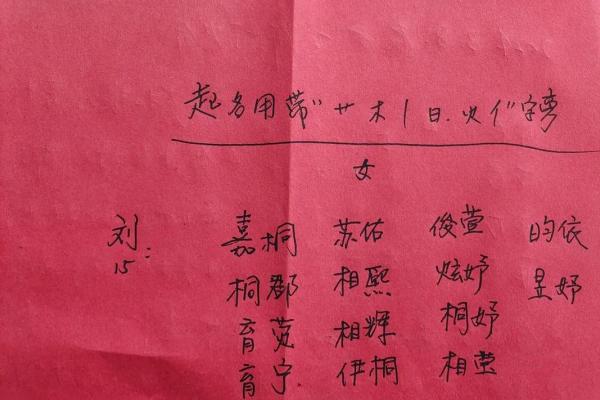 起名用带"艹木亻日.火亻"字旁
女
刘: 嘉桐 苏佑 俊萱 昀依
15 桐郡 相熙 炫妤 昱妤
育苋 相辉 桐妤
育宁. 伊桐 相莹